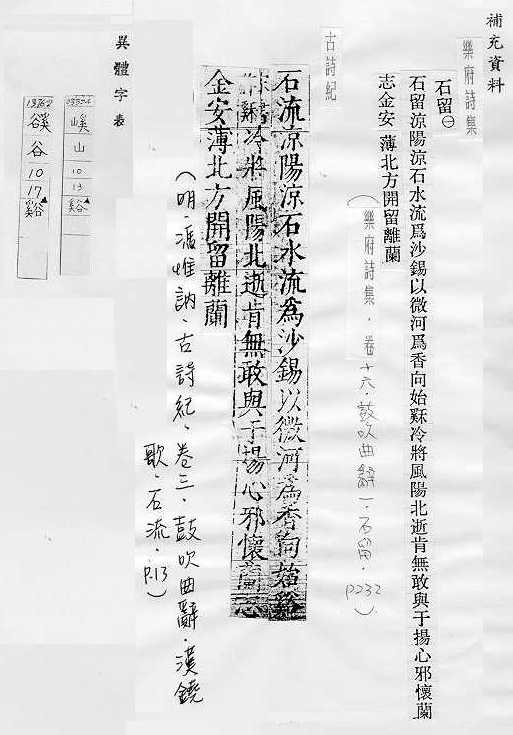 補充資料
樂府詩集
石留㊀
石留涼陽涼石水流爲沙錫以微河爲香向始䜴冷將風陽北逝肯無敢與于揚心邪懷蘭
志金安 薄北方開留離蘭
（樂府詩集．卷十六．鼓吹曲辭一．石留．P232）
古詩紀
石流涼陽涼石水流為沙錫以微河為香向始谿
冷將風陽北逝肯無敢與于揚心邪懷蘭志
金安薄北方開留離蘭
（明．馮惟訥．古詩紀．卷三．鼓吹曲辭．漢鐃
歌．石流．P.13）
異體字表
嵠
山
10
13
谿
谿
谷
10
17
谿